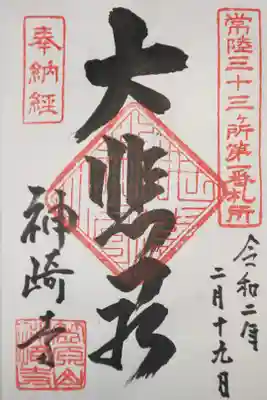 常陸三十三ヶ所第一番札所
奉納経
大悲殿
令和二年
二月十九日
神崎寺